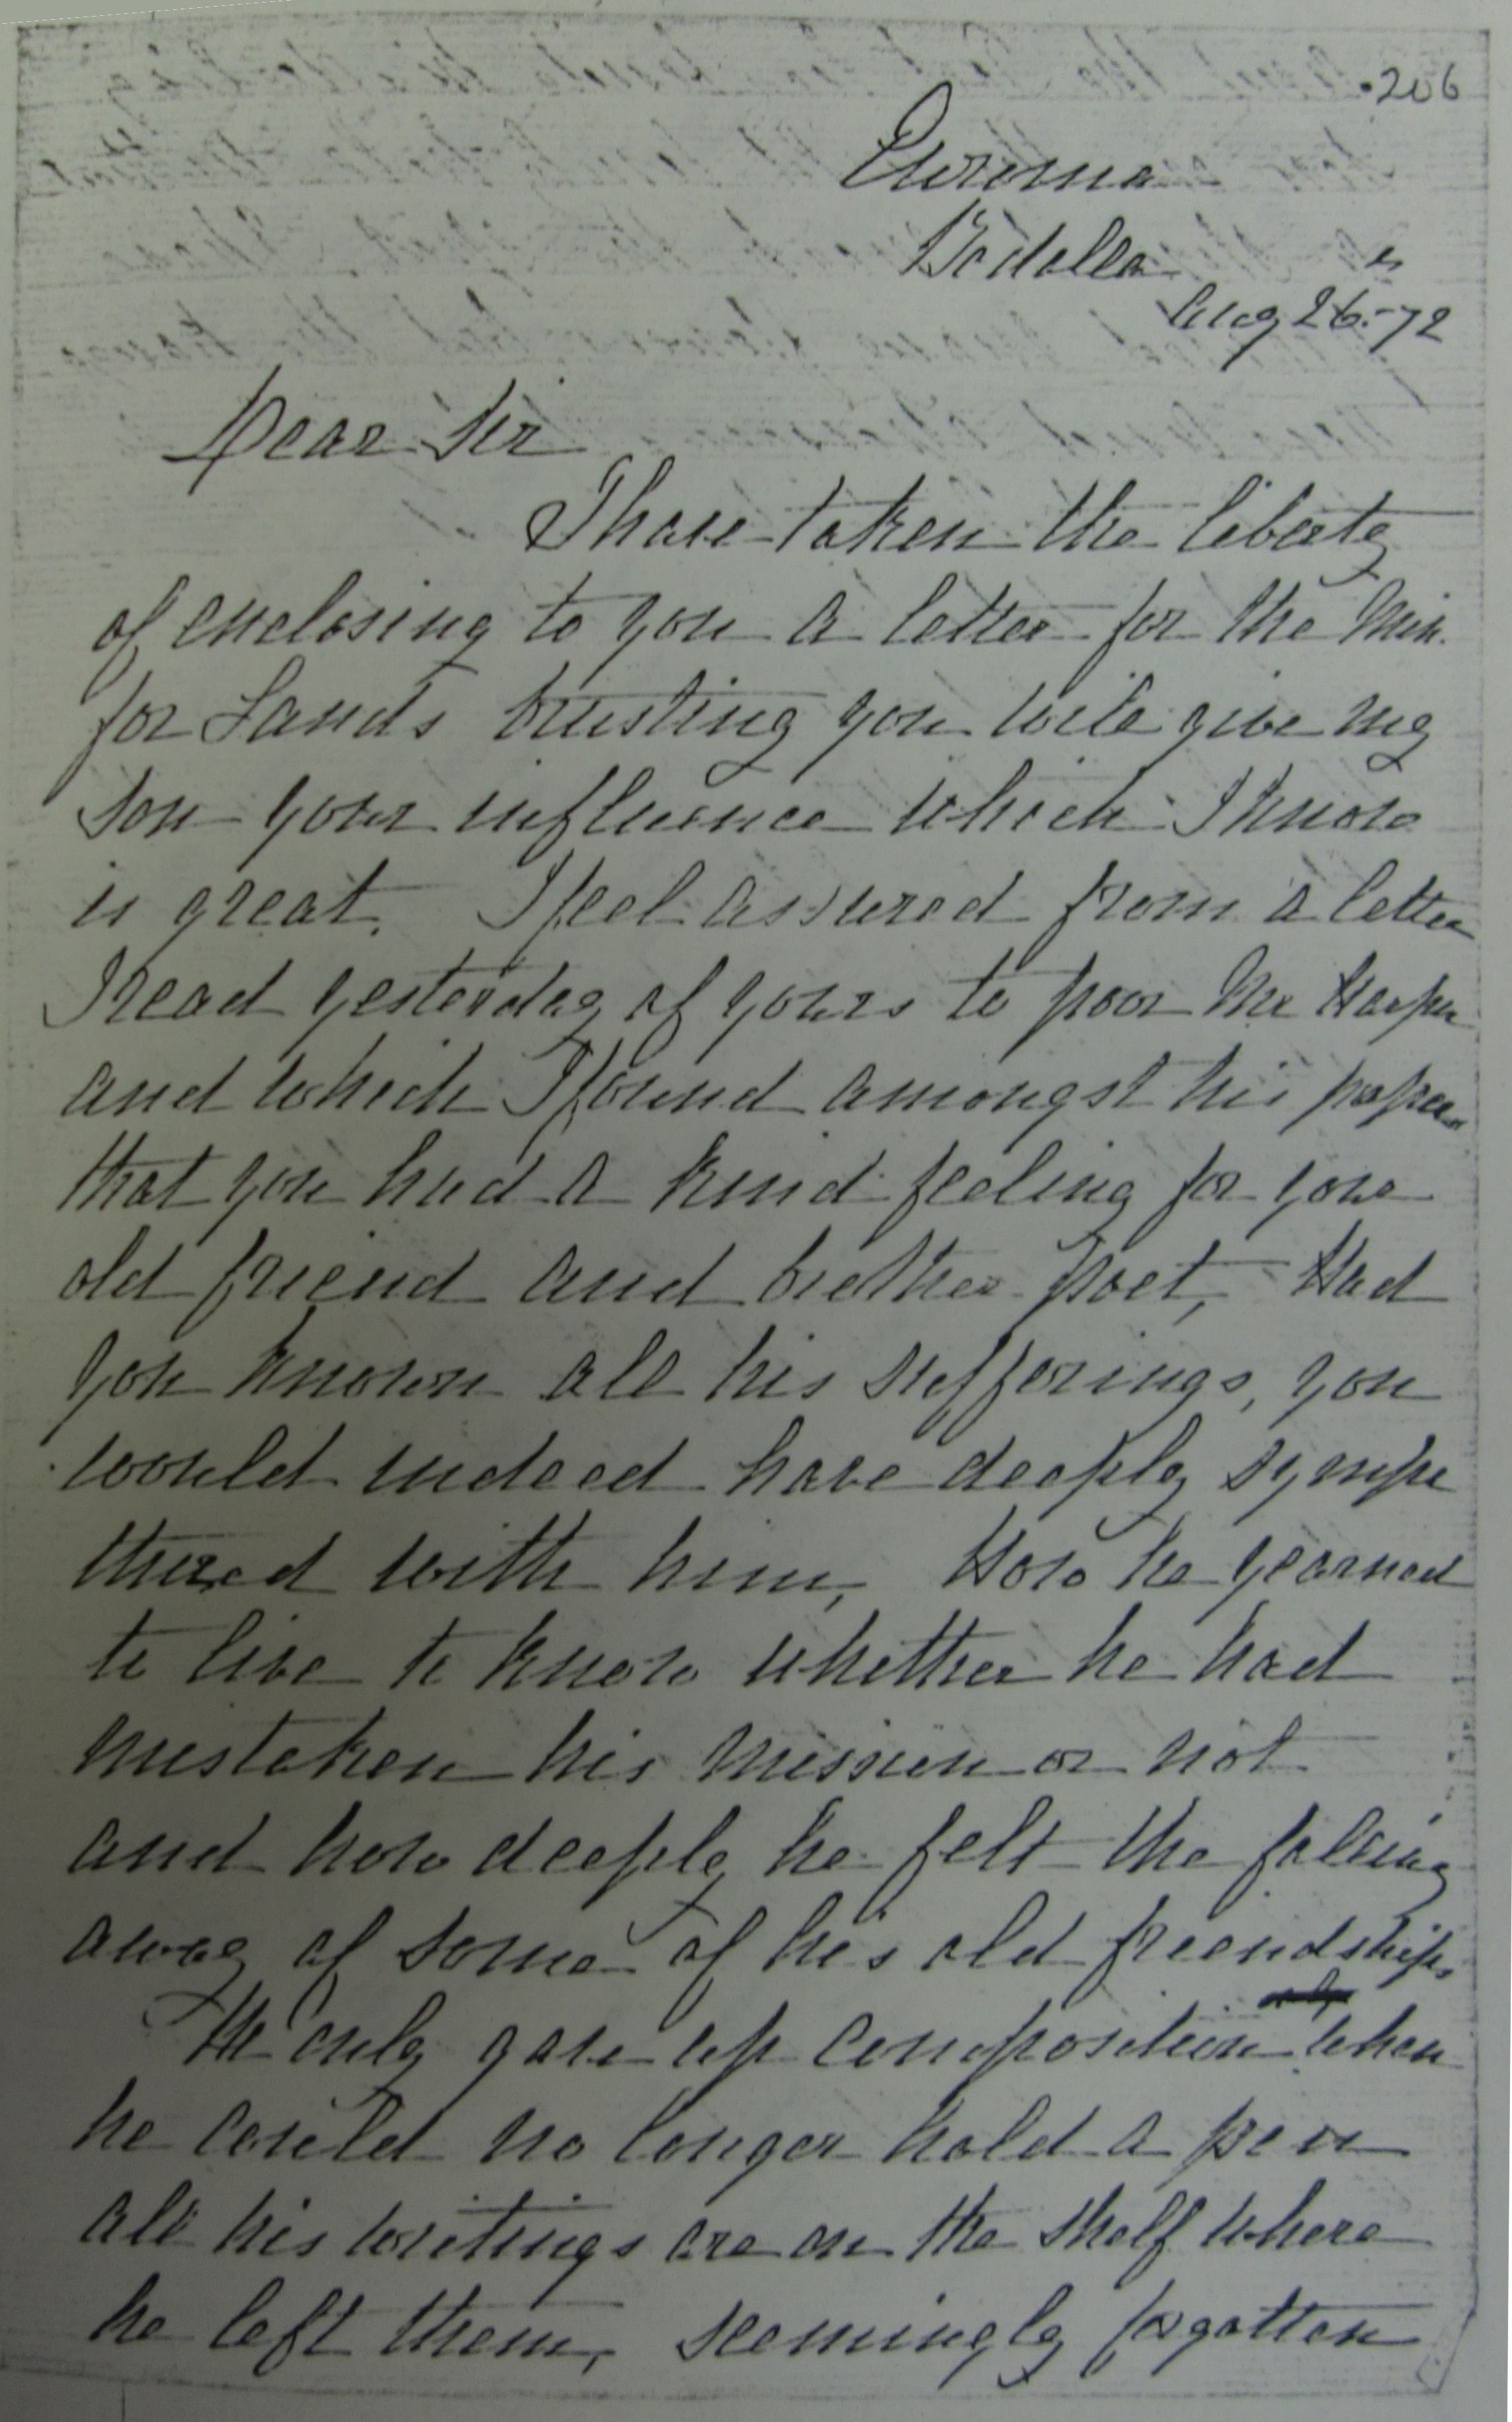 206
Euroma
Bodalla
Aug 26 - 72
Dear Sir
I have taken the liberty
of enclosing to you a letter for the Min.
for Lands trusting you will give my
son your influence which I know
is great. I feel assured from a letter
I read yesterday of yours to poor Mr Harpur
and which I found amongst his papers
that you had a kind feeling for your
old friend and brother poet, Had
you known all his sufferings, you
would indeed have deeply sympa
thized with him, How he yearned
to live to know whether he had
mistaken his mission or not
and how deeply he felt the falling
away of some of his old friendships.
He only gave up composition when
he could no longer hold a pen
all his writings are on the shelf where
he left them, seemingly forgotten